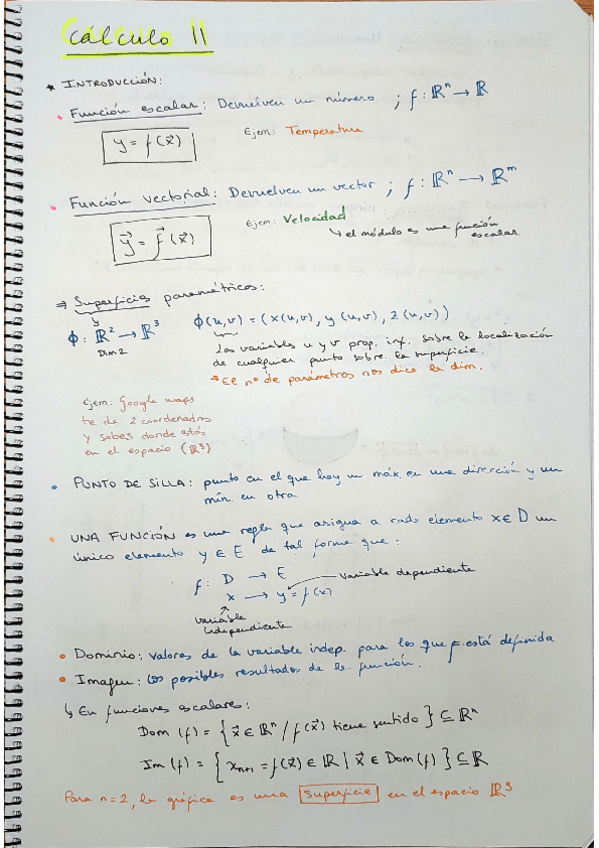 Cálculo II
* INTRODUCCIÓN:
• Función escalar: Devuelven un número ; f: ℝⁿ → ℝ
y = f(x⃗)
Ejem: Temperatura
• Función vectorial: Devuelven un vector ; f: ℝⁿ → ℝᵐ
y⃗ = f⃗(x⃗)
Ejem: Velocidad
↳ el módulo es una función
escalar
⇒ Superficies paramétricas:
Φ: ℝ² → ℝ³
Dim 2
Φ(u,v) = (x(u,v), y(u,v), z(u,v))
Las variables u y v prop. inf. sobre la localización
de cualquier punto sobre la superficie.
* El nº de parámetros nos dice la dim.
Ejem: Google maps
te da 2 coordenadas
y sabes donde estás
en el espacio (ℝ³)
• PUNTO DE SILLA: punto en el que hay un máx. en una dirección y un
mín. en otra
• UNA FUNCIÓN es una regla que asigna a cada elemento x ∈ D un
único elemento y ∈ E de tal forma que:
f: D → E
x → y = f(x)
variable dependiente
variable
independiente
• Dominio: valores de la variable indep. para los que f está definida
• Imagen: los posibles resultados de la función.
↳ En funciones escalares:
Dom (f) = { x⃗ ∈ ℝⁿ / f(x⃗) tiene sentido } ⊆ ℝⁿ
Im (f) = { xₙ₊₁ = f(x⃗) ∈ ℝ | x⃗ ∈ Dom (f) } ⊆ ℝ
Para n=2, la gráfica es una superficie en el espacio ℝ³